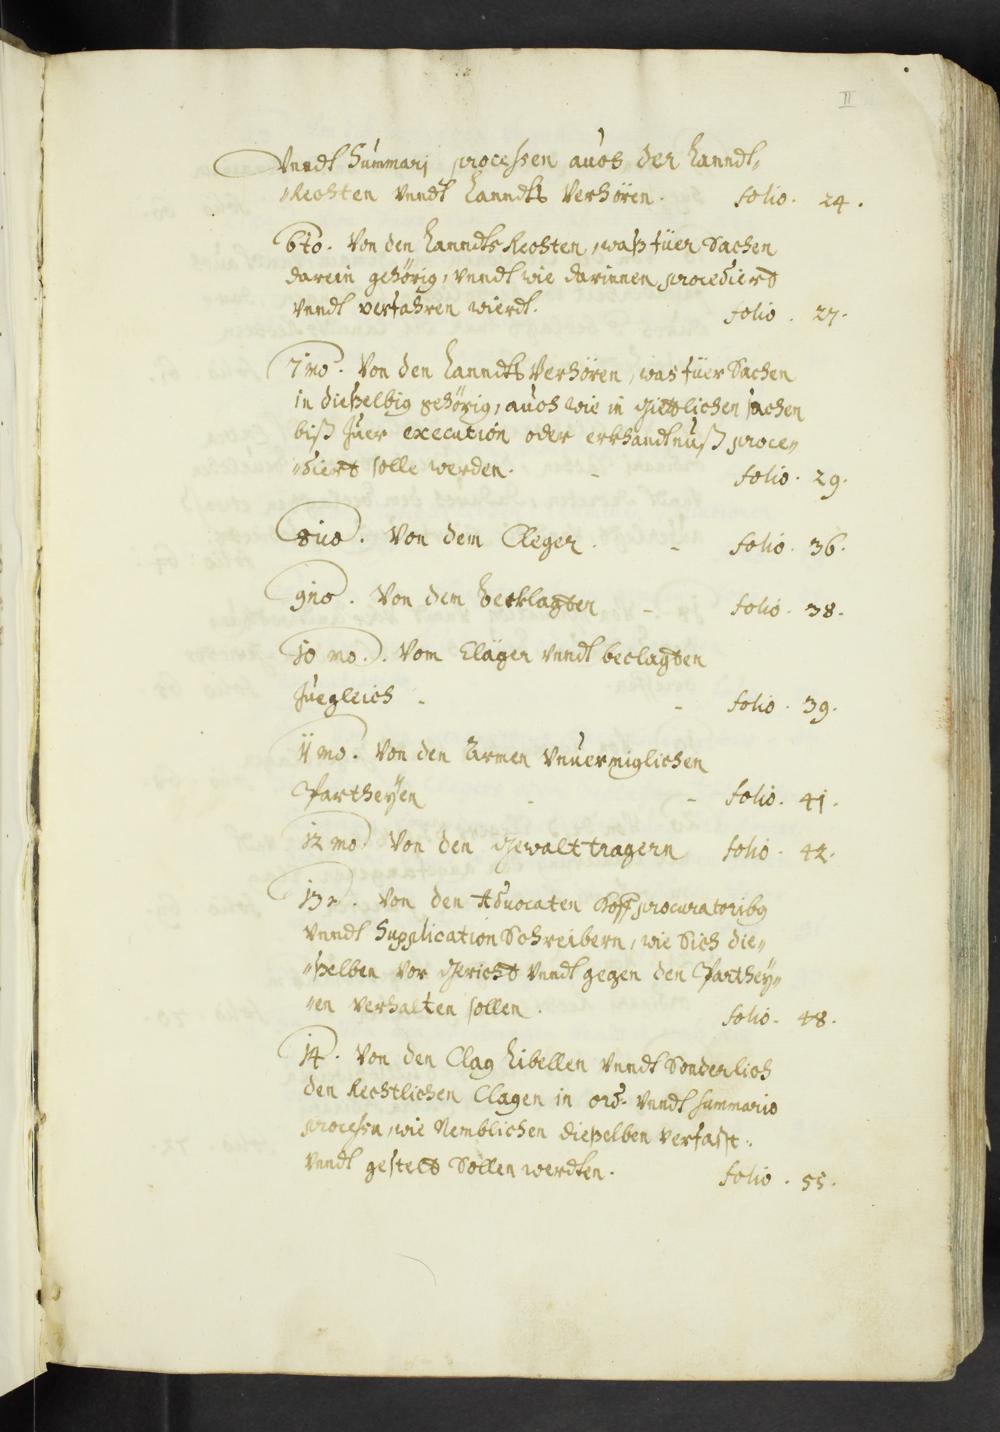 II
Vnndt Summarj processen auch der Lanndt„
„Rechten vnndt Lanndts Verhören. folio. 24.
6to. Von den Lanndts Rechten, waß füer Sachen
darein gehörig, vnndt wie darinnen procediert
vnndt verfahren wierdt. folio. 27.
7mo. Von den Lanndts Verhören, was füer Sachen
in dießelbig gehörig, auch wie in güettlichen sachen
biß zuer execution oder erkhandtnuß proce„
„diert solle werden. folio. 29.
8uo. Von dem Cleger. folio. 36.
9no. Von dem beeklagten folio. 38.
10 mo. Vom Cläger vnndt beclagten
zuegleich folio. 39.
11 mo. Von den Armen Vnuermiglichen
Partheyen folio. 41.
12 mo Von den Gewalttragern folio. 42.
13. Von den Aduocaten Hoffprocuratoribus
vnndt Supplication Schreibern, wie Sich die„
„ßelben vor Gericht vnndt gegen den Parthey„
„en verhalten sollen. folio. 48.
14. Von den Clag Libellen vnndt Sonderlich
den Rechtlichen Clagen in ord. vnndt summario
processu, wie Nemblichen dießelben verfasst.
vnndt gestelt Sollen werdten. folio. 55.